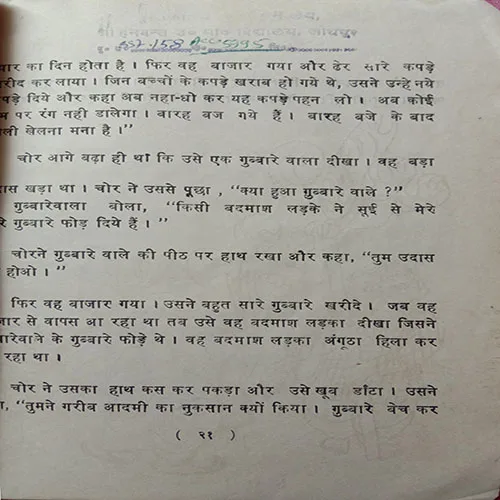 यार का दिन होता है । फिर वह बाजार गया और ढेर सारे कपड़े
रीद कर लाया । जिन बच्चों के कपड़े खराब हो गये थे, उसने उन्हे नये
पड़े दिये और कहा अब नहा-धो कर यह कपड़े पहन लो । अब कोई
म पर रंग नही डालेगा । बारह बज गये हैं । बारह बजे के बाद
ली खेलना मना है ।”
चोर आगे बढ़ा ही था कि उसे एक गुब्बारे वाला दीखा । वह बड़ा
ास खड़ा था । चोर ने उससे पूछा , “क्या हुआ गुब्बारे वाले ?”
गुब्बारेवाला बोला, “किसी बदमाश लड़के ने सूई से मेरे
रे गुब्बारे फोड़ दिये हैं । ”
चोरने गुब्बारे वाले की पीठ पर हाथ रखा और कहा, “तुम उदास
होओ । ”
फिर वह बाजार गया । उसने बहुत सारे गुब्बारे खरीदे । जब वह
जार से वापस आ रहा था तब उसे वह बदमाश लड़का दीखा जिसने
बारेवाले के गुब्बारे फोड़े थे । वह बदमाश लड़का अंगूठा हिला कर
रहा था ।
चोर ने उसका हाथ कस कर पकड़ा और उसे खूब डाँटा । उसने
ा, “तुमने गरीब आदमी का नुकसान क्यों किया । गुब्बारे बेच कर
( २१ )